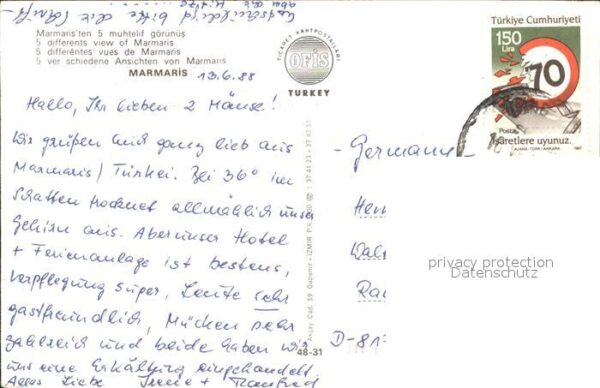 Entschuldigt bitte die Schrift
aber die Hitze
Marmaris'ten 5 muhtelif görünüş
5 differents view of Marmaris
5 differéntes vues de Marmaris
5 ver schiedene Ansichten von Marmaris
MARMARİS
13.6.88
TİCARET KARTPOSTALLARI
OFİS
TURKEY
Türkiye Cumhuriyeti
150
Lira
70
Posta
İşaretlere uyunuz.
AJANS-TÜRK/ANKARA 1987
Hallo, Ihr lieben 2 Mäuse!
Wir grüßen euch ganz lieb aus
Marmaris/Türkei. Bei 36° im
Schatten trocknet allmählich unser
Gehirn aus. Aber unser Hotel
+ Ferienanlage ist bestens,
Verpflegung super, Leute sehr
gastfreundlich, Mücken sehr
zahlreich und beide haben wir
uns eine Erkältung eingehandelt.
Alles Liebe Irene + Manfred
48-31
- Germany -
D-81
privacy protection
Datenschutz